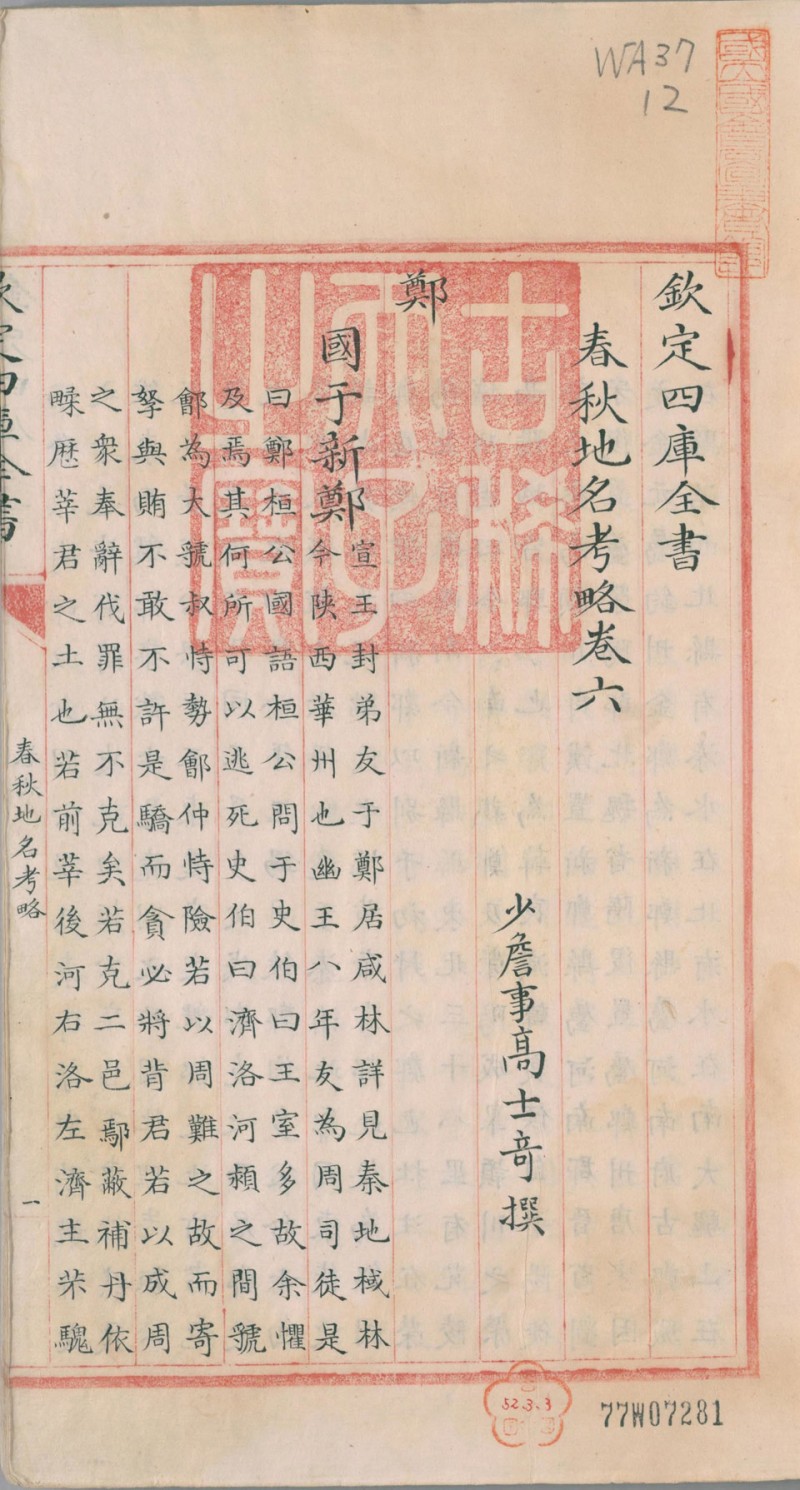 WA37
12
欽定四庫全書
春秋地名考略卷六
少詹事高士竒撰
鄭
國于新鄭宣王封弟友于鄭居咸林詳見秦地棫林
今陜西華州也幽王八年友為周司徒是
曰鄭桓公國語桓公問于史伯曰王室多故余懼
及焉其何所可以逃死史伯曰濟洛河潁之間虢
鄶為大虢叔恃勢鄶仲恃險若以周難之故而寄
孥與賄不敢不許是驕而貪必將背君若以成周
之衆奉辭伐罪無不克矣若克二邑鄢蔽補丹依
㽥歴莘君之土也若前莘後河右洛左濟主芣騩
欽定四庫全書
春秋地名考略
一
古稀天子之寶
52.3.3
77W07281